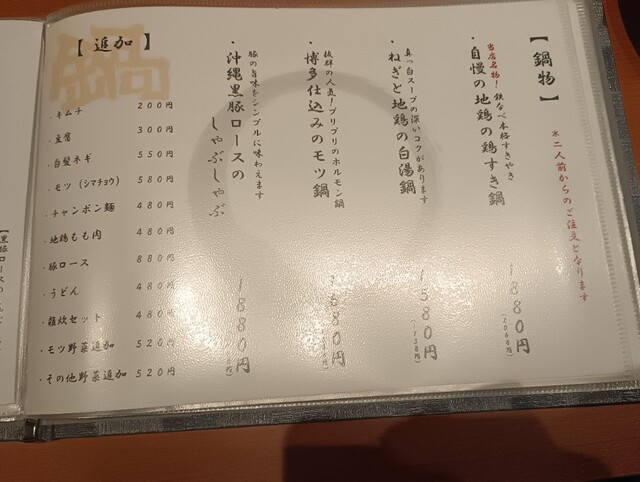 【鍋物】
※二人前からのご注文となります
当店名物！鉄なべ本格すきやき
・自慢の地鶏の鶏すき鍋
1880円
真っ白スープの深いコクがあります
・ねぎと地鶏の白湯鍋
1580円
抜群の人気！プリプリのホルモン鍋
・博多仕込みのモツ鍋
1680円
豚の旨味をシンプルに味わえます
・沖縄黒豚ロースの
しゃぶしゃぶ
1880円
鍋
【追加】
・キムチ 200円
・豆腐 300円
・白髪ネギ 550円
・モツ（シマチョウ） 580円
・チャンポン麺 480円
・地鶏もも肉 480円
・豚ロース 880円
・うどん 480円
・雑炊セット 480円
・モツ野菜追加 520円
・その他野菜追加 520円